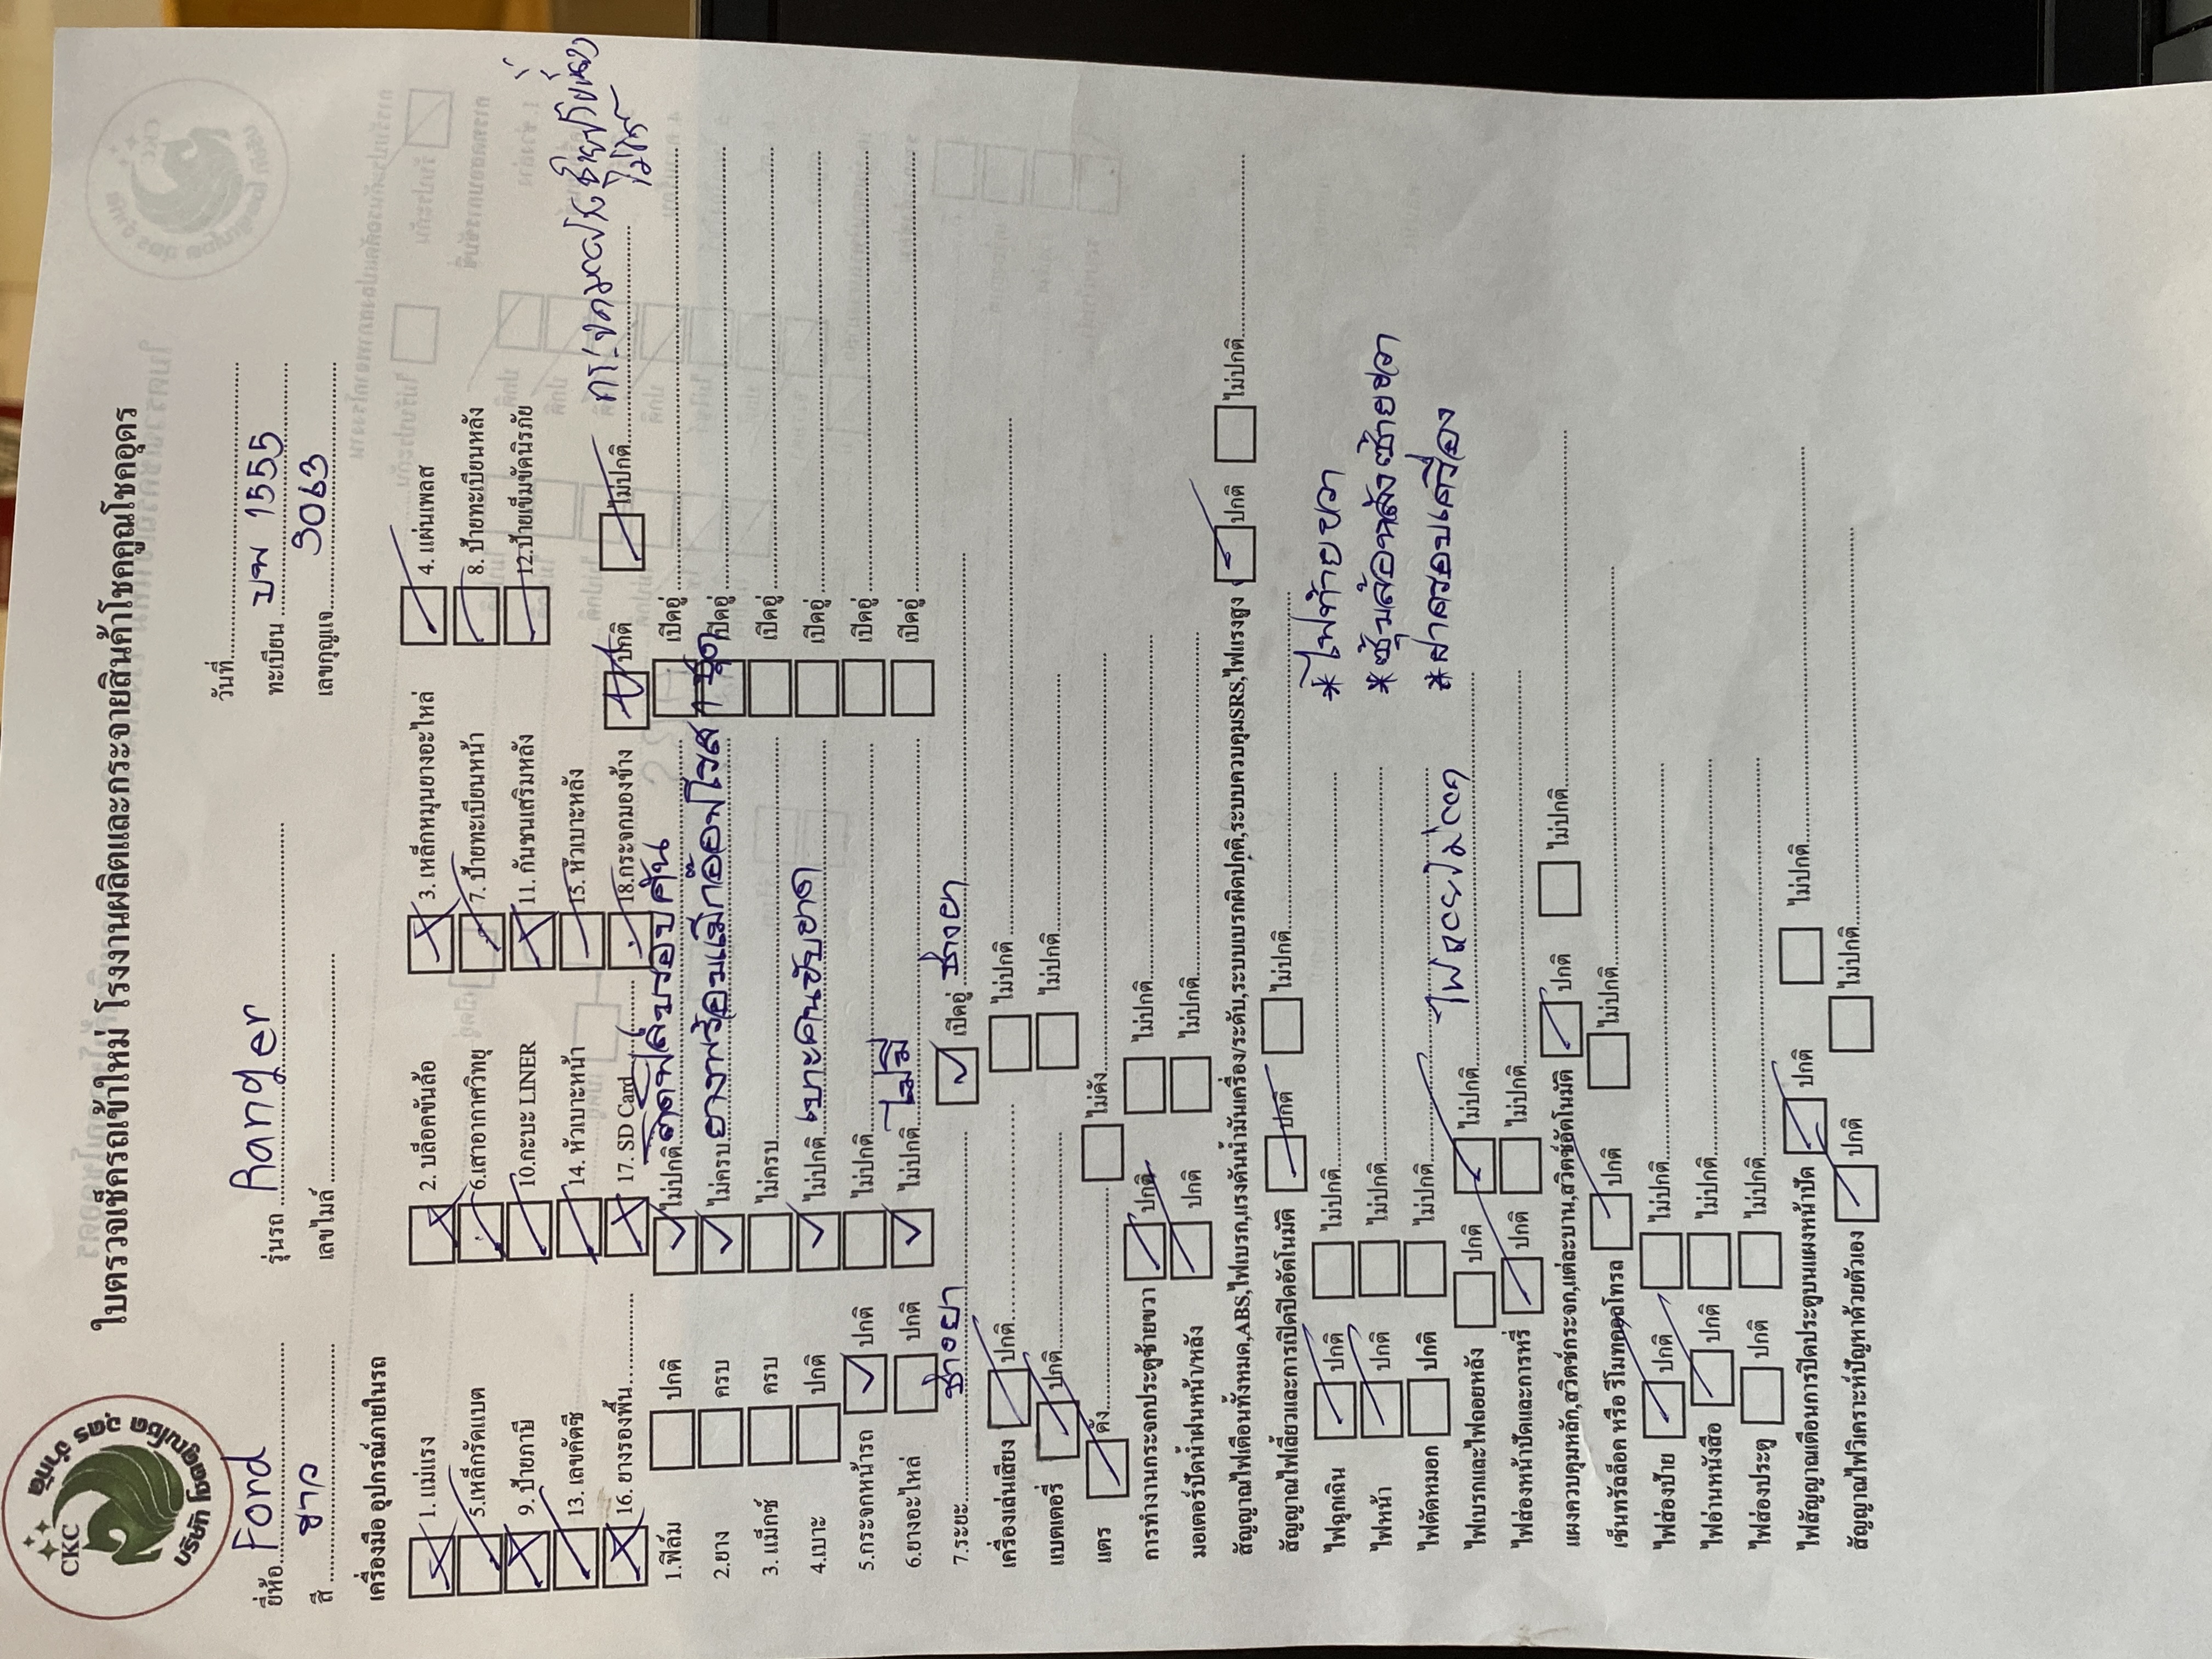 CKC
บริษัท โชคคูณโชค อุดร จำกัด
ใบตรวจเช็ครถเข้าใหม่ โรงงานผลิตและกระจายสินค้าโชคคูณโชคอุดร
วันที่
ยี่ห้อ Ford รุ่นรถ Ranger ทะเบียน บพ 1555
สี ขาว เลขไมล์ เลขกุญแจ 3063
เครื่องมือ อุปกรณ์ภายในรถ
1. แม่แรง 2. บล็อคขันล้อ 3. เหล็กหมุนยางอะไหล่ 4. แผ่นเพลส
5.เหล็กรัดแบต 6.เสาอากาศวิทยุ 7. ป้ายทะเบียนหน้า 8. ป้ายทะเบียนหลัง
9. ป้ายภาษี 10.กะบะ LINER 11. กันชนเสริมหลัง 12.ป้ายเข็มขัดนิรภัย
13. เลขคัตซี 14. หัวเบาะหน้า 15. หัวเบาะหลัง
16. ยางรองพื้น 17. SD Card 18.กระจกมองข้าง ปกติ ไม่ปกติ ไม่ได้
1.ฟิล์ม ปกติ ไม่ปกติ ติดฟิล์มรอบคัน เปิดอู่
2.ยาง ครบ ไม่ครบ ยางพร้อมแม็กออฟโรส 1 ชุด เปิดอู่
3. แม็กซ์ ครบ ไม่ครบ เปิดอู่
4.เบาะ ปกติ ไม่ปกติ เบาะคนขับขาด เปิดอู่
5.กระจกหน้ารถ ปกติ ไม่ปกติ เปิดอู่
6.ยางอะไหล่ ปกติ ไม่ปกติ ไม่มี เปิดอู่
7.ระยะ ช่างยา เปิดอู่ ช่างยา
เครื่องเล่นเสียง ปกติ ไม่ปกติ
แบตเตอรี่ ปกติ ไม่ปกติ
แตร ดัง ไม่ดัง
การทำงานกระจกประตูซ้ายขวา ปกติ ไม่ปกติ
มอเตอร์ปัดน้ำฝนหน้า/หลัง ปกติ ไม่ปกติ
สัญญาณไฟเตือนทั้งหมด,ABS,ไฟเบรก,แรงดันน้ำมันเครื่อง/ระดับ,ระบบเบรกผิดปกติ,ระบบควบคุมSRS,ไฟแรงสูง ปกติ ไม่ปกติ
สัญญาณไฟเลี้ยวและการเปิดปิดอัตโนมัติ ปกติ ไม่ปกติ
ไฟฉุกเฉิน ปกติ ไม่ปกติ * ไฟท้ายขวา
ไฟหน้า ปกติ ไม่ปกติ * ซุ้มล้อหลังซ้ายขวา
ไฟตัดหมอก ปกติ ไม่ปกติ * ฝาครอบเครื่อง
ไฟเบรกและไฟถอยหลัง ปกติ ไม่ปกติ
ไฟส่องหน้าปัดและการหรี่ ปกติ ไม่ปกติ
แผงควบคุมหลัก,สวิตช์กระจก,แต่ละบาน,สวิตช์อัตโนมัติ ปกติ ไม่ปกติ
เซ็นทรัลล็อค หรือ รีโมทคอลโทรล ปกติ ไม่ปกติ
ไฟส่องป้าย ปกติ ไม่ปกติ
ไฟอ่านหนังสือ ปกติ ไม่ปกติ
ไฟส่องประตู ปกติ ไม่ปกติ
ไฟสัญญาณเตือนการปิดประตูบนแผงหน้าปัด ปกติ ไม่ปกติ
สัญญาณไฟวิเคราะห์ปัญหาด้วยตัวเอง ปกติ ไม่ปกติ